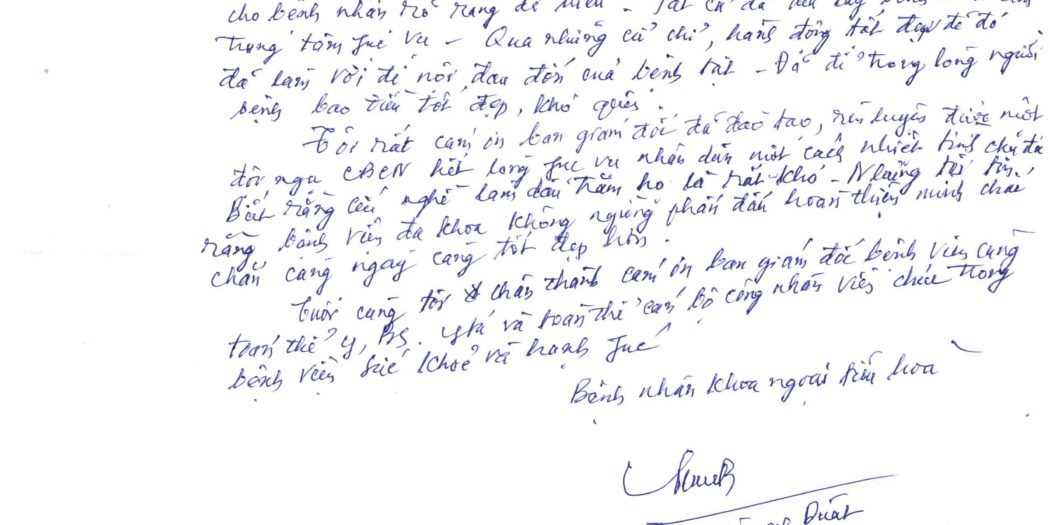 cho bệnh nhân rõ ràng dễ hiểu - Tất cả đã
trọng tâm fuc vụ - Qua những cử chỉ, hành động tốt đẹp đó đó
đã làm vời đi nỗi đau đớn của bệnh tật - Đã đi trong lòng người
bệnh bao điều tốt đẹp, khó quên.
Tôi rất cám ơn ban giám đốc đã đào tạo, rèn luyện được một
đội ngũ CBCN hết lòng fuc vụ nhân dân một cách nhiệt tình chu đáo
Biết rằng cái nghề làm dâu trăm họ là rất khó - Nhưng tôi tin
rằng bệnh viện đa khoa không ngừng phấn đấu hoàn thiện mình chắc
chắn càng ngày càng tốt đẹp hơn.
Cuối cùng tôi chân thành cám ơn ban giám đốc bệnh viện cùng
toàn thể y, BS. y tá và toàn thể cán bộ công nhân viên chức trong
bệnh viện sức khoẻ và hạnh fuc
Bệnh nhân khoa ngoại tiêu hoá
Duật